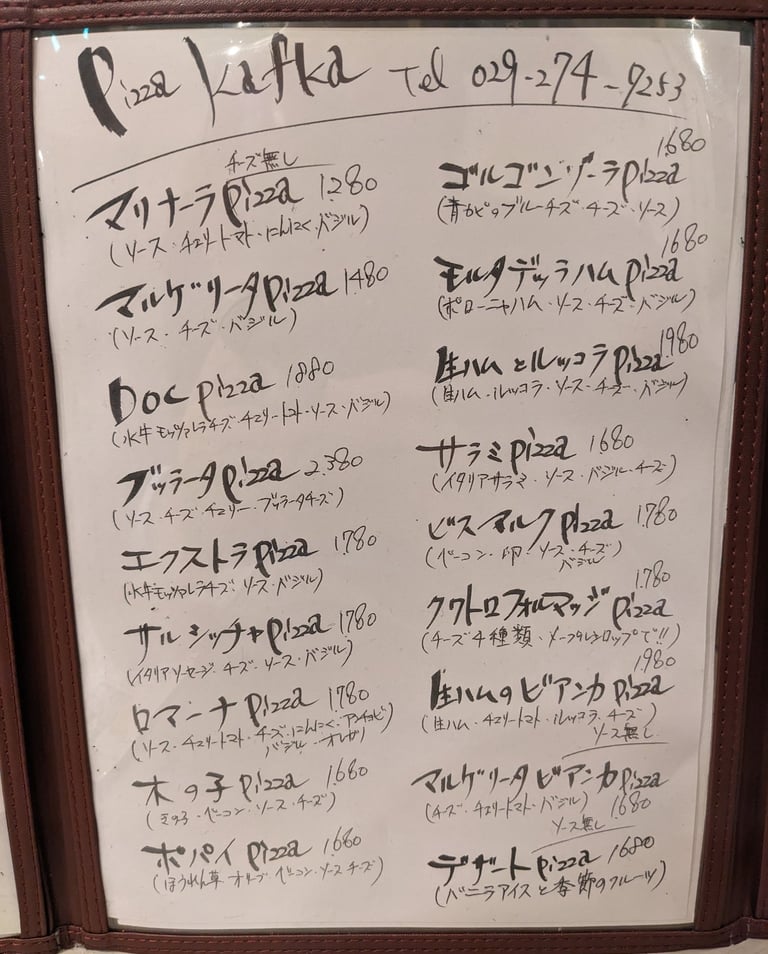 Pizza Kafka Tel 029-274-9253
チーズ無し
マリナーラpizza 1.280
(ソース・チェリートマト・にんにく・バジル)
マルゲリータpizza 1.480
(ソース・チーズ・バジル)
Doc pizza 1.880
(水牛モッツァレラチーズ・チェリートマト・ソース・バジル)
ブッラータpizza 2.380
(ソース・チーズ・チェリー・ブッラータチーズ)
エクストラpizza 1.780
(水牛モッツァレラチーズ・ソース・バジル)
サルシッチャpizza 1.780
(イタリアソーセージ・チーズ・ソース・バジル)
ロマーナpizza 1.780
(ソース・チェリートマト・チーズ・にんにく・アンチョビ
バジル・オレガノ)
木の子pizza 1.680
(きの子・ベーコン・ソース・チーズ)
ポパイpizza 1.680
(ほうれん草 オリーブ ベーコン・ソース チーズ)
1.680
ゴルゴンゾーラpizza
(青カビのブルーチーズ・チーズ・ソース)
1.680
モルタデッラハムpizza
(ボローニャハム・ソース・チーズ・バジル)
生ハムとルッコラpizza 1.980
(生ハム・ルッコラ・ソース・チーズ・バジル)
サラミpizza 1.680
(イタリアサラミ・ソース・バジル・チーズ)
ビスマルクpizza 1.780
(ベーコン・卵・ソース・チーズ
バジル)
1.780
クワトロフォルマッジpizza
(チーズ4種類・メープルシロップで!!)
1.980
生ハムのビアンカpizza
(生ハム・チェリートマト・ルッコラ・チーズ)
ソース無し
マルゲリータビアンカpizza
(チーズ・チェリートマト・バジル) 1.680
ソース無し
デザートpizza 1.680
(バニラアイスと季節のフルーツ)